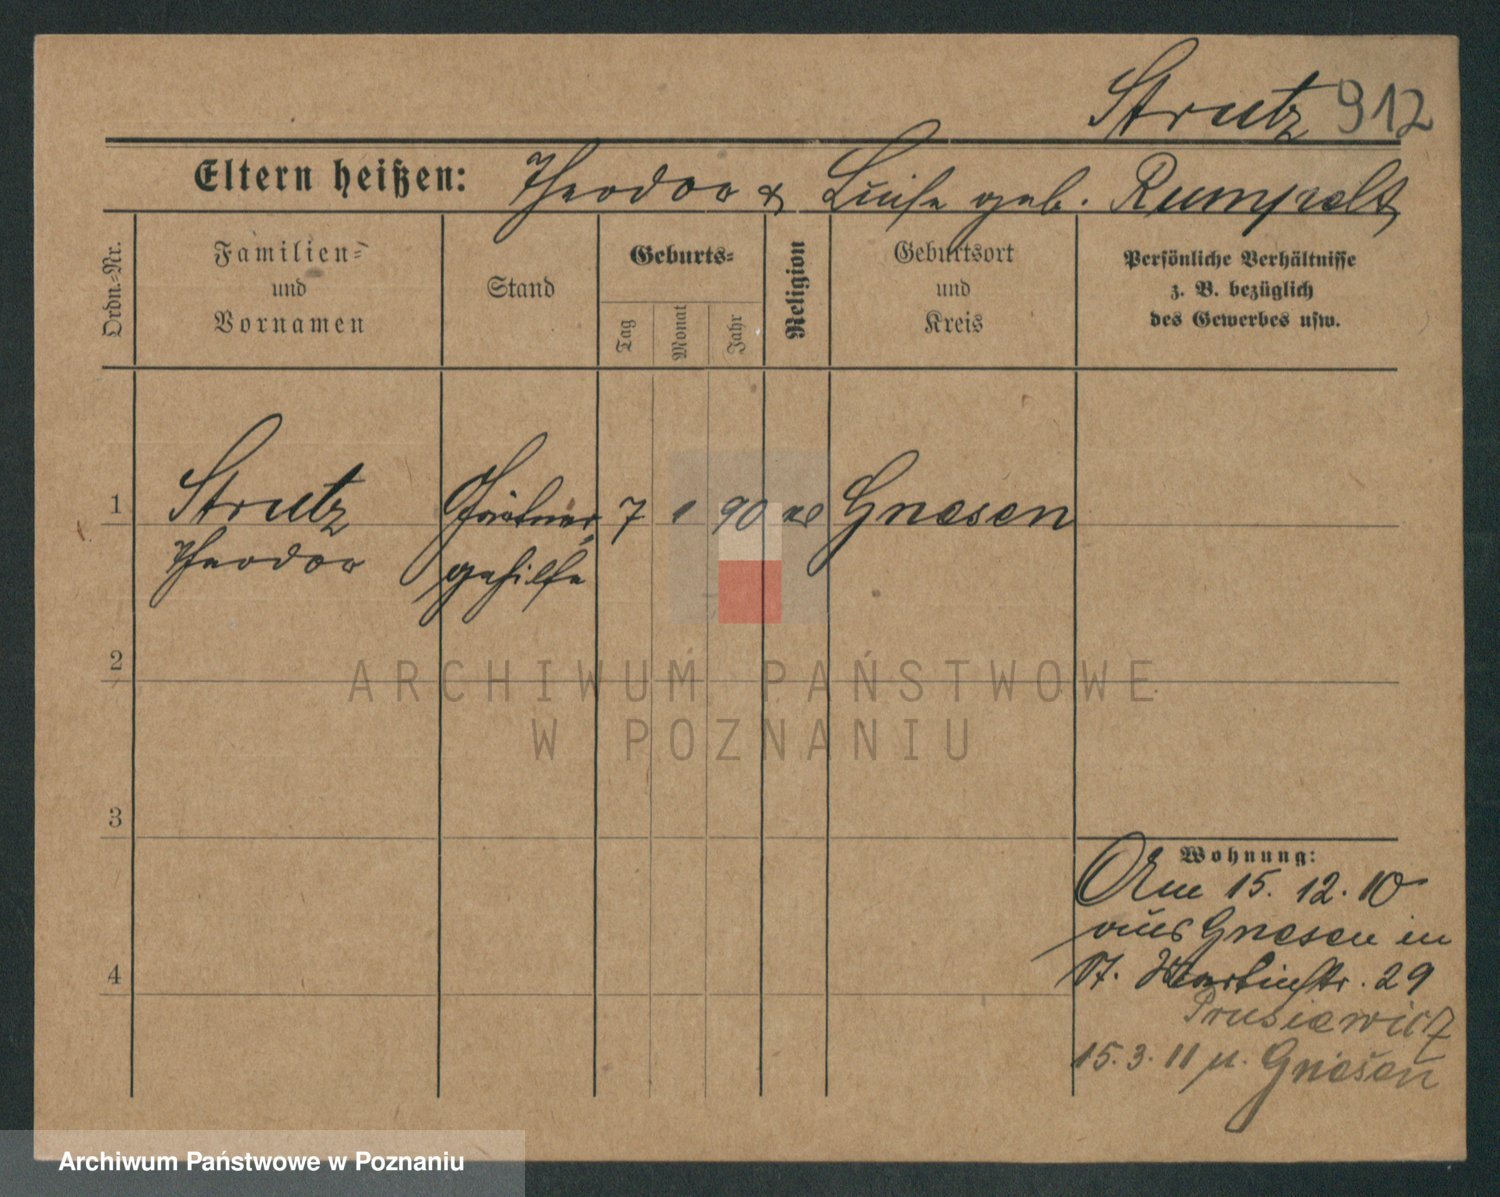 Strutz 912
Eltern heißen: Theodor & Luise geb. Rumpelt
Ordn.-Nr.
Familien-
und
Vornamen
Stand
Geburts-
Tag
Monat
Jahr
Religion
Geburtsort
und
Kreis
Persönliche Verhältnisse
z. B. bezüglich
des Gewerbes usw.
1 Strutz Gärtner- 7 1 90 Gnesen
Theodor gehilfe
2
ARCHIWUM PAŃSTWOWE
W POZNANIU
3
Wohnung:
Am 15. 12. 10
aus Gnesen in
St. Martinstr. 29
Prusiewicz
4
15. 3. 11 n. Gnesen
Archiwum Państwowe w Poznaniu